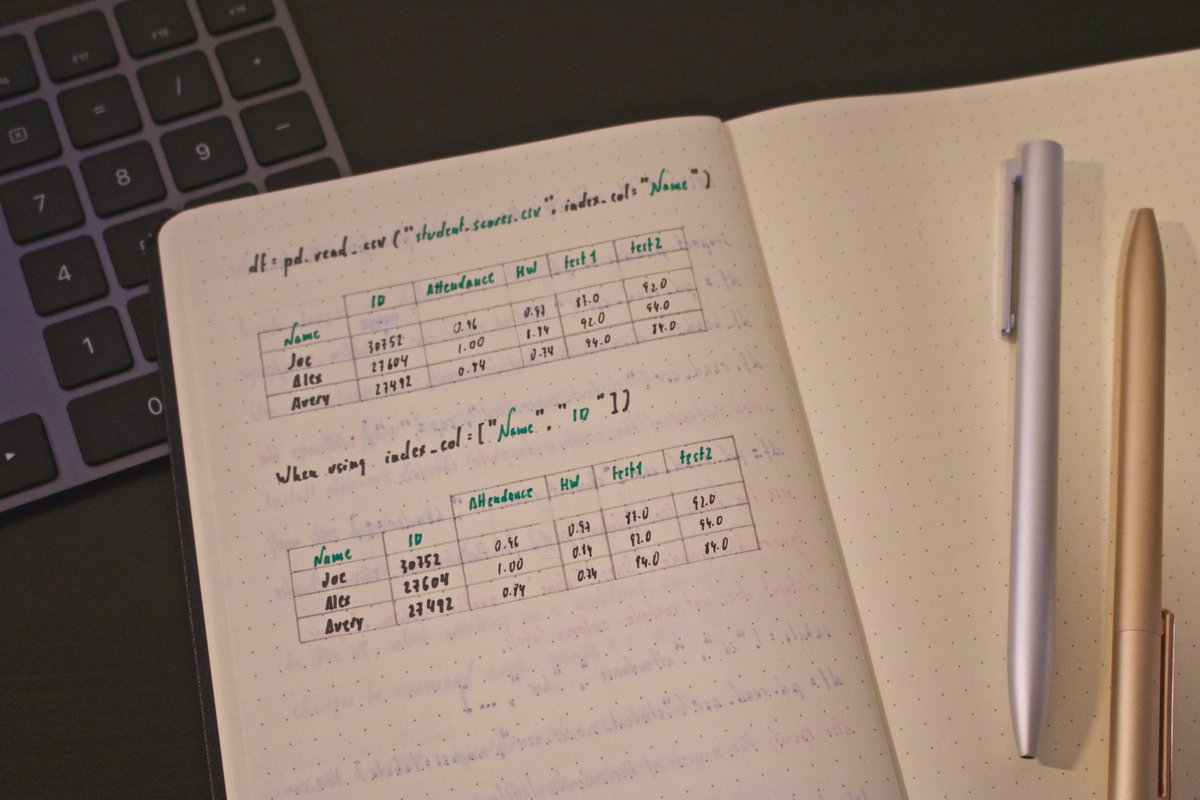 F17
F18
F19
=
/
*
7
8
9
-
4
1
0
df = pd.read_csv ("student_scores.csv", index_col="Name")
ID Attendance HW test1 test2
Name
Joe 30752 0.96 0.97 87.0 92.0
Alex 27604 1.00 92.0 94.0
Avery 27492 0.84 0.74 94.0 84.0
When using index_col=["Name", "ID"])
Attendance HW test1 test2
Name ID
Joe 30752 0.96 0.97 87.0 92.0
Alex 27604 1.00 0.84 92.0 94.0
Avery 27492 0.84 0.74 94.0 84.0